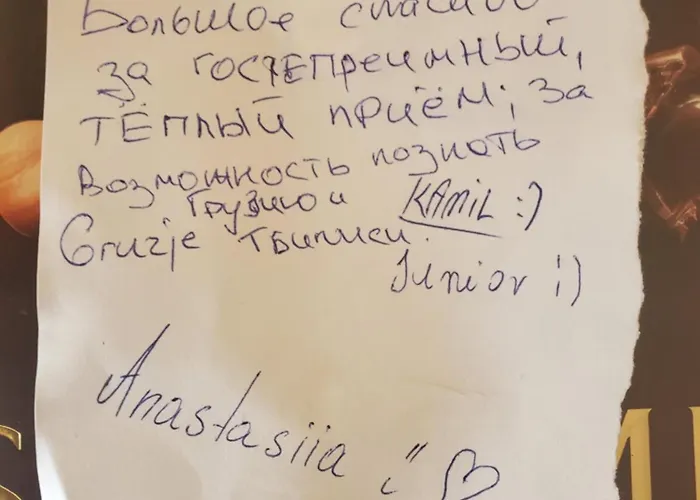 Большое спасибо
за гостепреимный,
тёплый приём; за
Возможность познать
Грузию и KAMIL :)
Gruzje Тбилиси.
Junior ;)
Anastasiia ♡